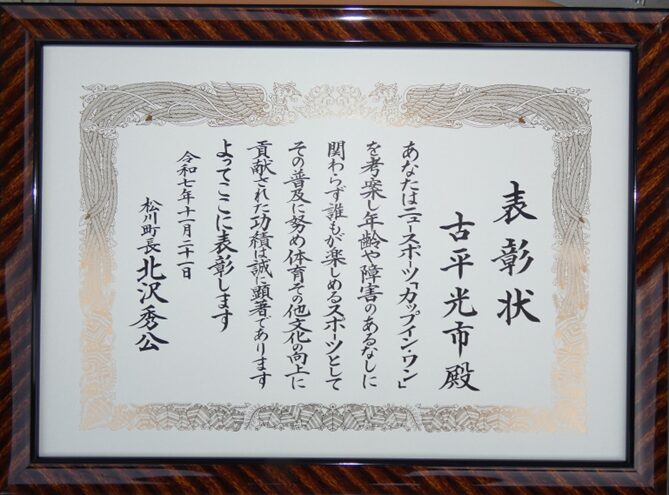 表彰状
古平光市殿
あなたはニュースポーツ「カップイン・ワン」
を考案し年齢や障害のあるなしに
関わらず誰もが楽しめるスポーツとして
その普及に努め体育その他文化の向上に
貢献された功績は誠に顕著であります
よってここに表彰します
令和七年十一月二十一日
松川町長 北沢秀公